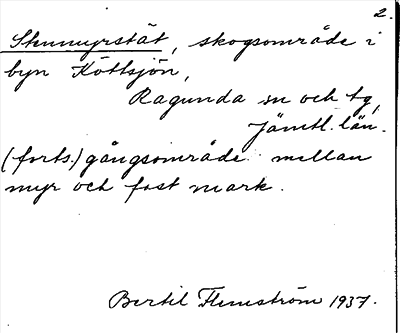 2.
Stenmyrstät, skogsområde i
byn Köttsjön,
Ragunda sn och tg,
Jämtl. län.
(forts.) gångsområde mellan
myr och fast mark.
Bertil Flemström 1937.